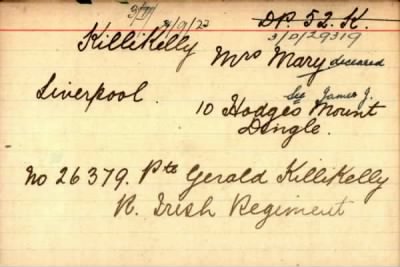 3/71
21/9/22
D.P. 52. K.
3/D/29319
Killikelly Mrs Mary deceased
See James J.
Liverpool. 10 Hodges Mount
Dingle.
No 26379. Pte Gerald Killikelly
R. Irish Regiment